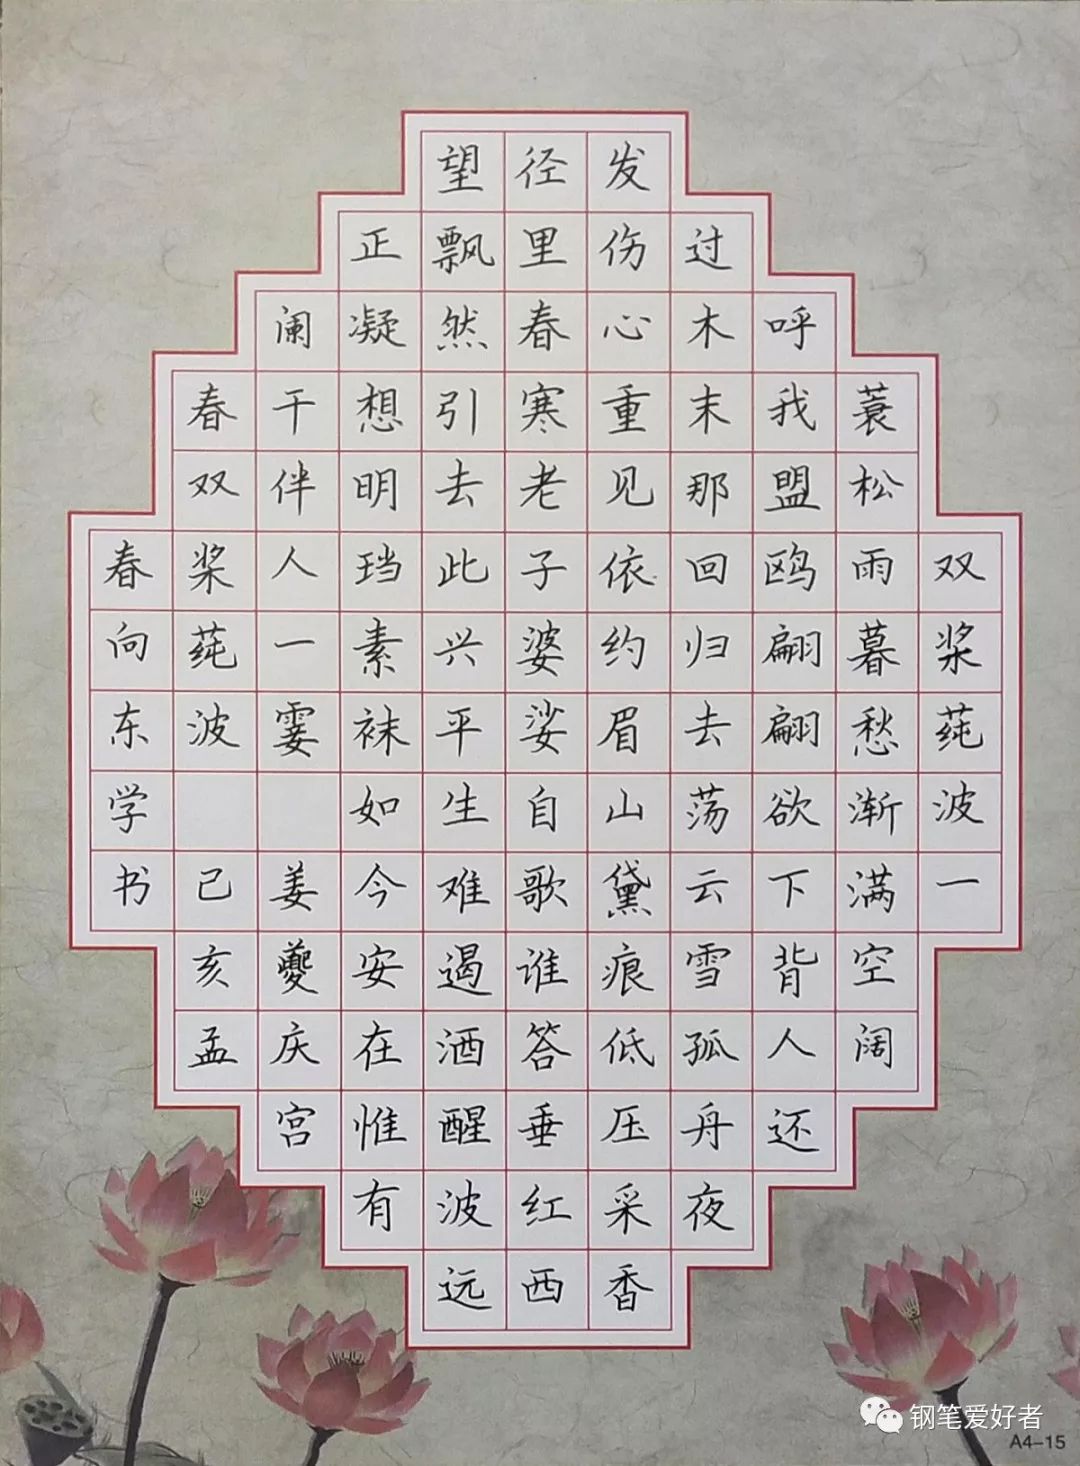 双桨莼波一
蓑松雨暮愁渐满空阔
呼我盟鸥翩翩欲下背人还
过木末那回归去荡云雪孤舟夜
发伤心重见依约眉山黛痕低压采香
径里春寒老子婆娑自歌谁答垂红西
望飘然引去此兴平生难遏酒醒波远
正凝想明珰素袜如今安在惟有
阑干伴人一霎 姜夔庆宫
春双桨莼波 己亥孟
春向东学书
钢笔爱好者
A4-15